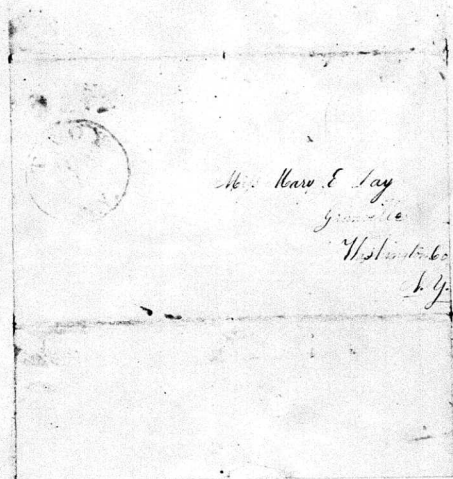 Miss Mary E
Granville
Washington Co
N.Y.